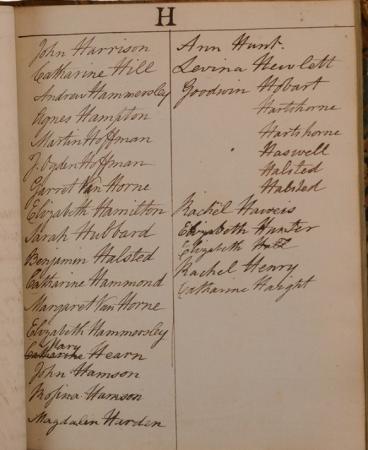 H
John Harrison
Catharine Hill
Andrew Hammersley
Agnes Hampton
Martin Hoffman
J. Ogden Hoffman
Garrot Van Horne
Elizabeth Hamilton
Sarah Hubbard
Benjamin Halsted
Catharine Hammond
Margaret Van Horne
Elizabeth Hammersley
Mary
Catharine Hearn
John Hamson
Rosina Hamson
Magdalen Harden
Ann Hunt.
Levina Hewlett
Goodwin Hobart
Hartshorne
Hartshorne
Haswell
Halsted
Halsted
Rachel Haweis
Elizabeth Hunter
Elizabeth
Rachel Henry
Catharine Haight